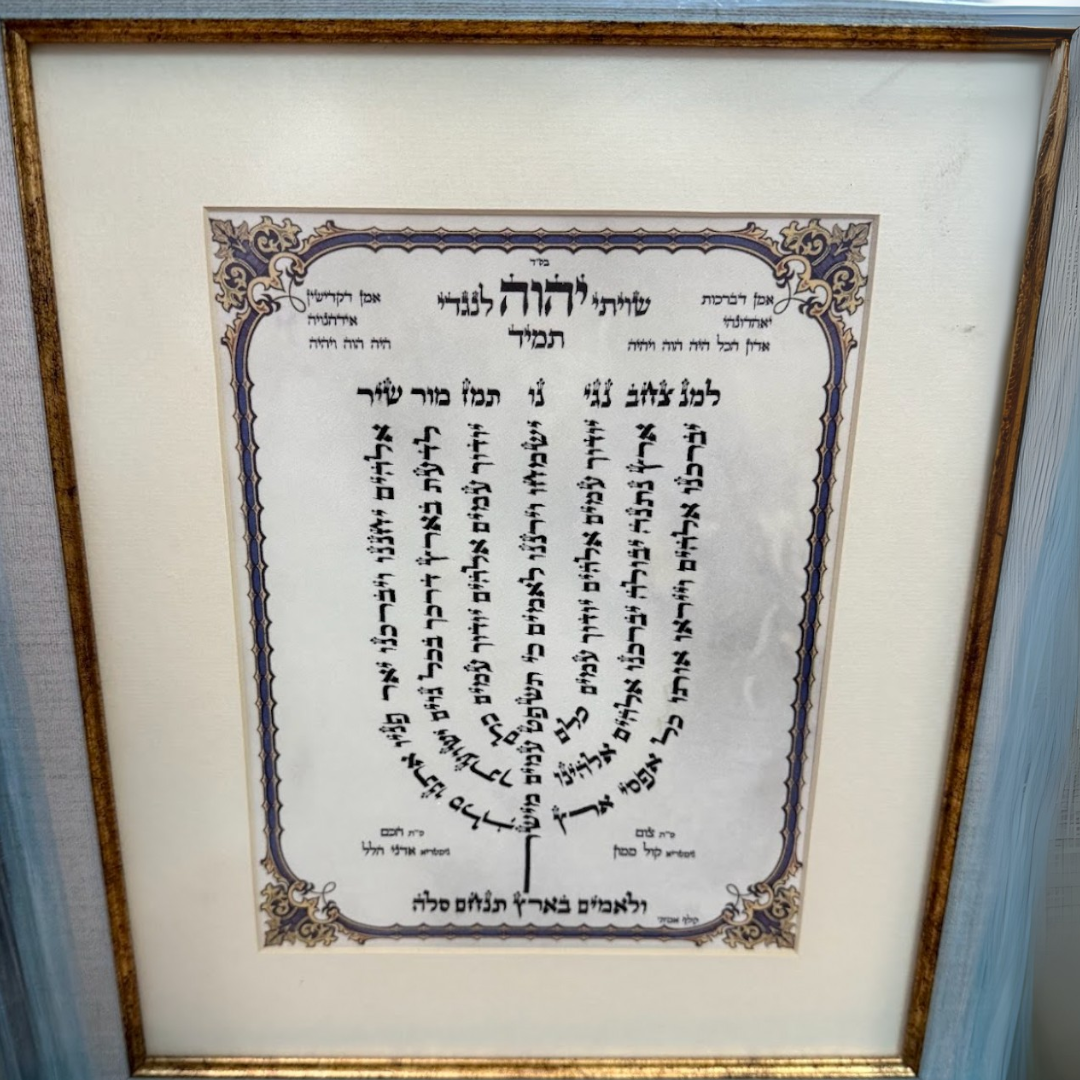 בס"ד
אמן דברכות
יאהדונהי
אדון הכל היה הוה ויהיה
שויתי יהוה לנגדי
תמיד
אמן דקדישין
אידהנויה
היה הוה ויהיה
למנ צחב נגי נו תמז מור שיר
יברכנו אלהים וייראו אותו כל אפסי ארץ
ארץ נתנה יבולה יברכנו אלהים אלהינו
יודוך עמים אלהים יודוך עמים כלם
ישמחו וירננו לאמים כי תשפט עמים מישר
יודוך עמים אלהים יודוך עמים כלם
לדעת בארץ דרכך בכל גוים ישועתך
אלהים יחננו ויברכנו יאר פניו אתנו סלה
צום
גימטריא קול ממון
חכם
גימטריא אדני הלל
ולאמים בארץ תנחם סלה
קלף